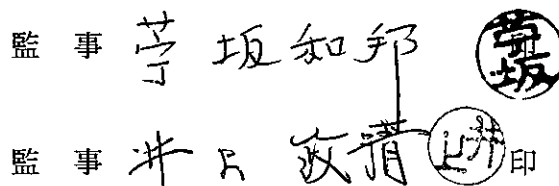 監事 苧坂和邦 苧坂
監事 井上政清 井上 印